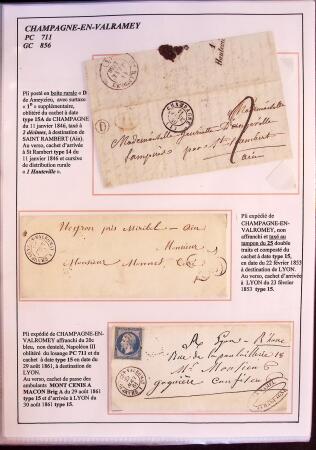 CHAMPAGNE-EN-VALRAMEY
PC 711
GC 856
Pli posté en boîte rurale « D »
de Ameyzieu, avec surtaxe
« 1d » supplémentaire,
oblitéré du cachet à date
type 15A de CHAMPAGNE
du 11 janvier 1846, taxé à
2 décimes, à destination de
SAINT RAMBERT (Ain).
Au verso, cachet d'arrivée
à St Rambert type 14 du
11 janvier 1846 et cursive
de distribution rurale
« 1 Hauteville ».
Mademoiselle
Mademoiselle
par St Rambert
Ain
2
Pli expédié de
CHAMPAGNE-EN-
VALROMEY, non
affranchi et taxé au
tampon du 25 double
traits et composté du
cachet à date type 15,
en date du 22 février 1853
à destination de LYON.
Au verso, cachet d'arrivée
à LYON du 23 février
1853 type 15.
Meyron près Miribel - Ain
Monsieur
Monsieur Monnet
Pli expédié de CHAMPAGNE-EN-
VALROMEY affranchi du 20c
bleu, non dentelé, Napoléon III
oblitéré du losange PC 711 et du
cachet à date type 15 en date du
29 août 1861, à destination de
LYON.
Au verso, cachet de passe des
ambulants MONT CENIS A
MACON Brig A du 29 août 1861
type 15 et d'arrivée à LYON du
30 août 1861 type 15.
A Lyon - Rhône
Rue de la poulaillerie 18